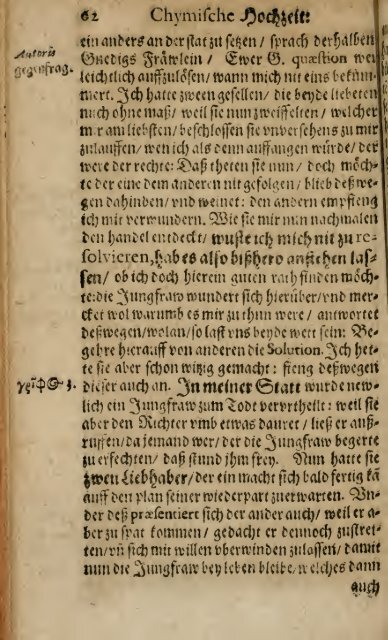 62 Chymische Hochzeit:
ein anders an der stat zu setzen/ sprach derhalben
Autoris
gegenfrag.
Gnedigs Fräwlein/ Ewer G. quæstion wer
leichtlich auffzulösen/ wann mich nit eins bekům-
mert. Ich hatte zween gesellen/ die beyde liebeten
mich ohne maß/ weil sie nun zweiffelten/ welcher
mir am liebsten/ beschlossen sie vnversehens zu mir
zulauffen/ wen ich als denn auffangen würde/ der
were der rechte: Daß theten sie nun/ doch möch-
te der eine dem anderen nit gefolgen/ blieb deßwe-
gen dahinden/ vnd weinet: den andern empfieng
ich mit verwundern. Wie sie mir nun nachmalen
den handel entdeckt/ wuste ich mich nit zu re-
solvieren, hab es also bißhero anstehen las-
sen/ ob ich doch hierein guten rath finden möch-
te: die Jungfraw wundert sich hierüber/ vnd mer-
cket wol warumb es mir zu thun were/ antwortet
deßwegen/ wolan/ so last vns beyde wett sein: Be-
gehre hierauff von anderen die Solution. Ich het-
te sie aber schon witzig gemacht: fieng deßwegen
3.
dieser auch an. In meiner Statt wurde new-
lich ein Jungfraw zum Todt vervrtheilt: weil sie
aber den Richter vmb etwas dauret/ ließ er auß-
ruffen/ da jemand wer/ der die Jungfraw begerte
zu erfechten/ daß stund jhm frey. Nun hatte sie
zwen Liebhaber/ der ein macht sich bald fertig kā
auff den plan seiner wiederpart zuerwarten. Vn-
der deß præsentiert sich der ander auch/ weil er a-
ber zu spat kommen/ gedacht er dennoch zustret-
ten/ vn̄ sich mit willen vberwinden zulassen/ damit
nun die Jungfraw bey leben bleibe/ welches dann
auch